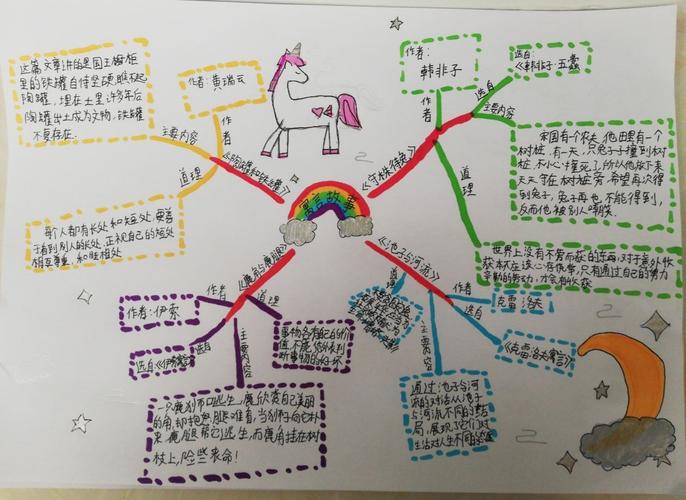 寓言故事
《陶罐和铁罐》
作者
作者:黄瑞云
主要内容
这篇文章讲的是国王橱柜
里的铁罐自恃坚硬,瞧不起
陶罐,埋在土里许多年后
陶罐出土成为文物,铁罐
不复存在.
道理
每个人都有长处和短处,要善
于看到别人的长处,正视自己的短处
相互尊重,和睦相处
《守株待兔》
作者
作者:
韩非子
选自
选自:
《韩非子·五蠹
主要内容
宋国有个农夫,他田里有一个
树桩,有一天,一只兔子撞到树
桩,不小心撞死了,所以他放下来
天天守在树桩旁,希望再次得
到兔子,兔子再也不能得到,
反而他被别人嘲笑.
道理
世界上没有不劳而获的
只有通过自己的努力
才会有收获
《鹿角与鹿腿》
作者
作者:伊索
选自
选自《伊索寓言》
道理
事物各有自己的价
值,不能
断事物的好坏
主要内容
一只鹿到
的角,却抱怨腿难看,当狮子向它扑
来,鹿腿帮它逃生,而鹿角挂在树
枝上,险些丧命!
《池子与河流》
道理
作者
克雷洛夫
选自
《克雷洛夫寓言》
主要内容
通过池子与河
流的对话从池子
与河流不同的结
局,展现了它们对
生活对人生不同的